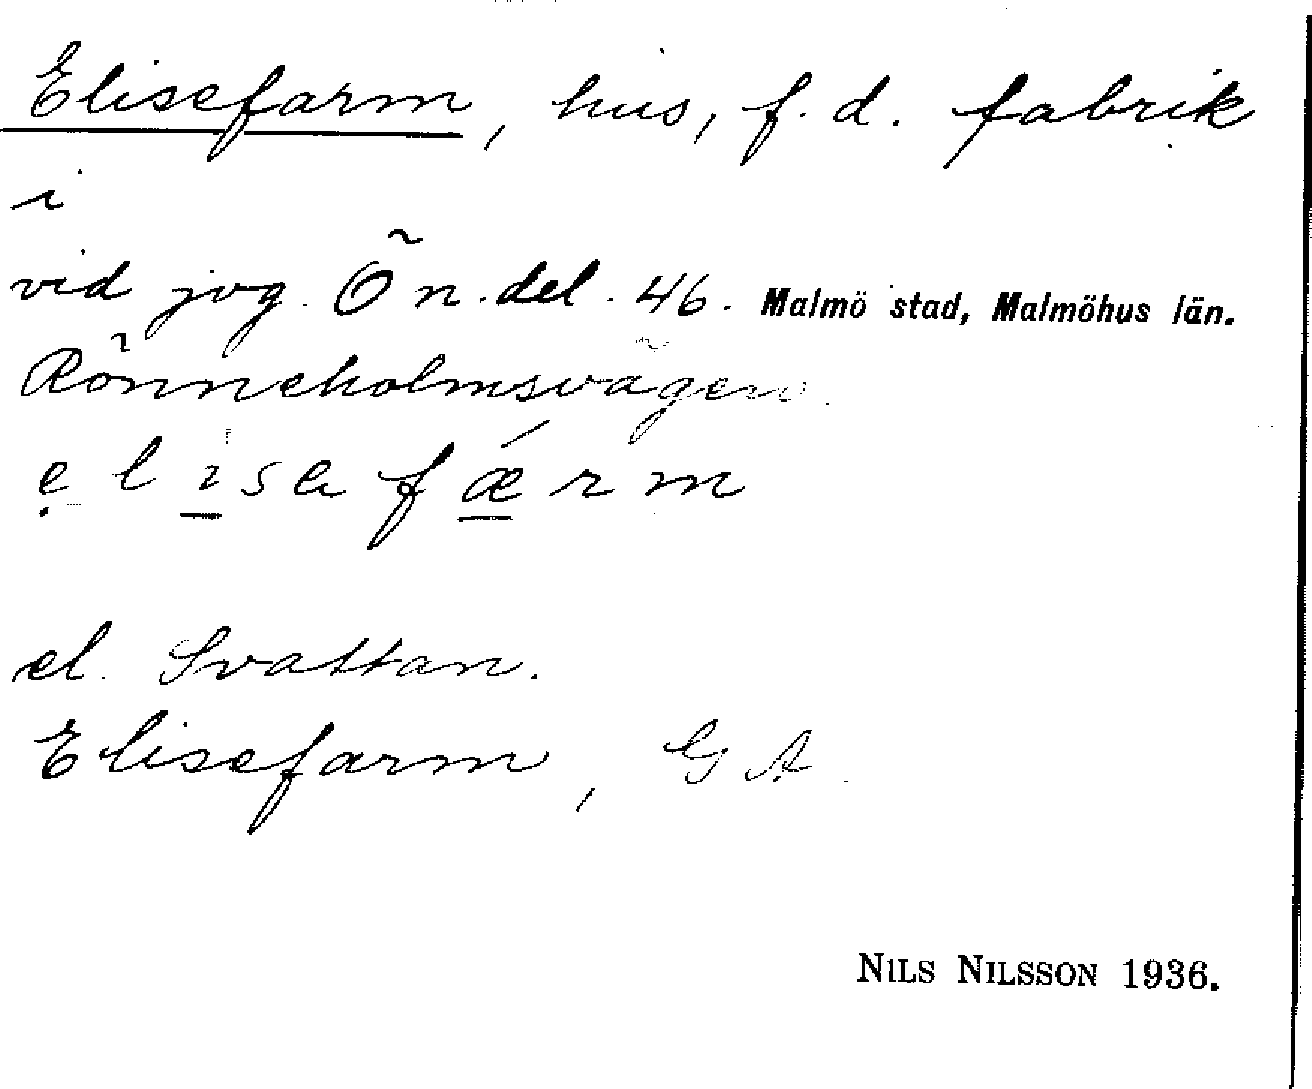 Elisefarm, hus, f. d. fabrik
i
vid jvg. Ö n. del. 46. Malmö stad, Malmöhus län.
Rönneholmsvägen.
ẹ l i s e f ǽ r m
el. Svattan.
Elisefarm, G A.
NILS NILSSON 1936.